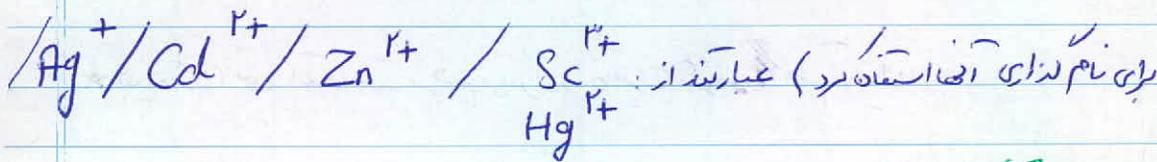 برای نام گذاری آنها استفاده کرد) عبارتند از: Sc³⁺ / Zn²⁺ / Cd²⁺ / Ag⁺ /
Hg²⁺